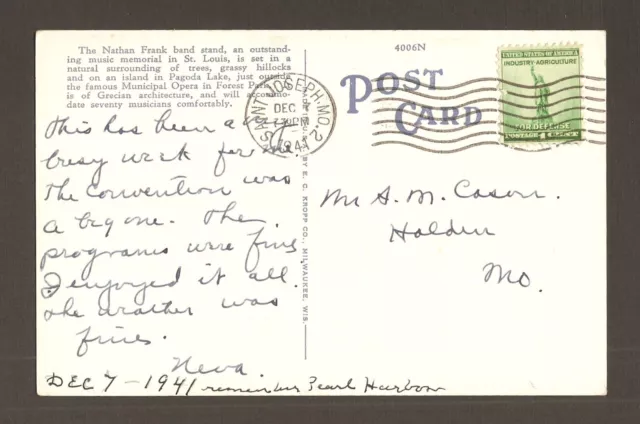 The Nathan Frank band stand, an outstand-
ing music memorial in St. Louis, is set in a
natural surrounding of trees, grassy hillocks
and on an island in Pagoda Lake, just outside
the famous Municipal Opera in Forest Park.
is of Grecian architecture, and will accommo-
date seventy musicians comfortably.
This has been a very
busy week for me
The Convention was
a big one. The
programs were fine
I enjoyed it all.
The weather was
fine.
Neva.
DEC 7 - 1941 remember Pearl Harbor
MADE BY E. C. KROPP CO., MILWAUKEE, WIS.
4006N
POST
CARD
SAINT JOSEPH, MO. 2
DEC
PM
1941
UNITED STATES OF AMERICA
INDUSTRY-AGRICULTURE
FOR DEFENSE
POSTAGE 1 CENT
Mr A. M. Cason
Holden
Mo.